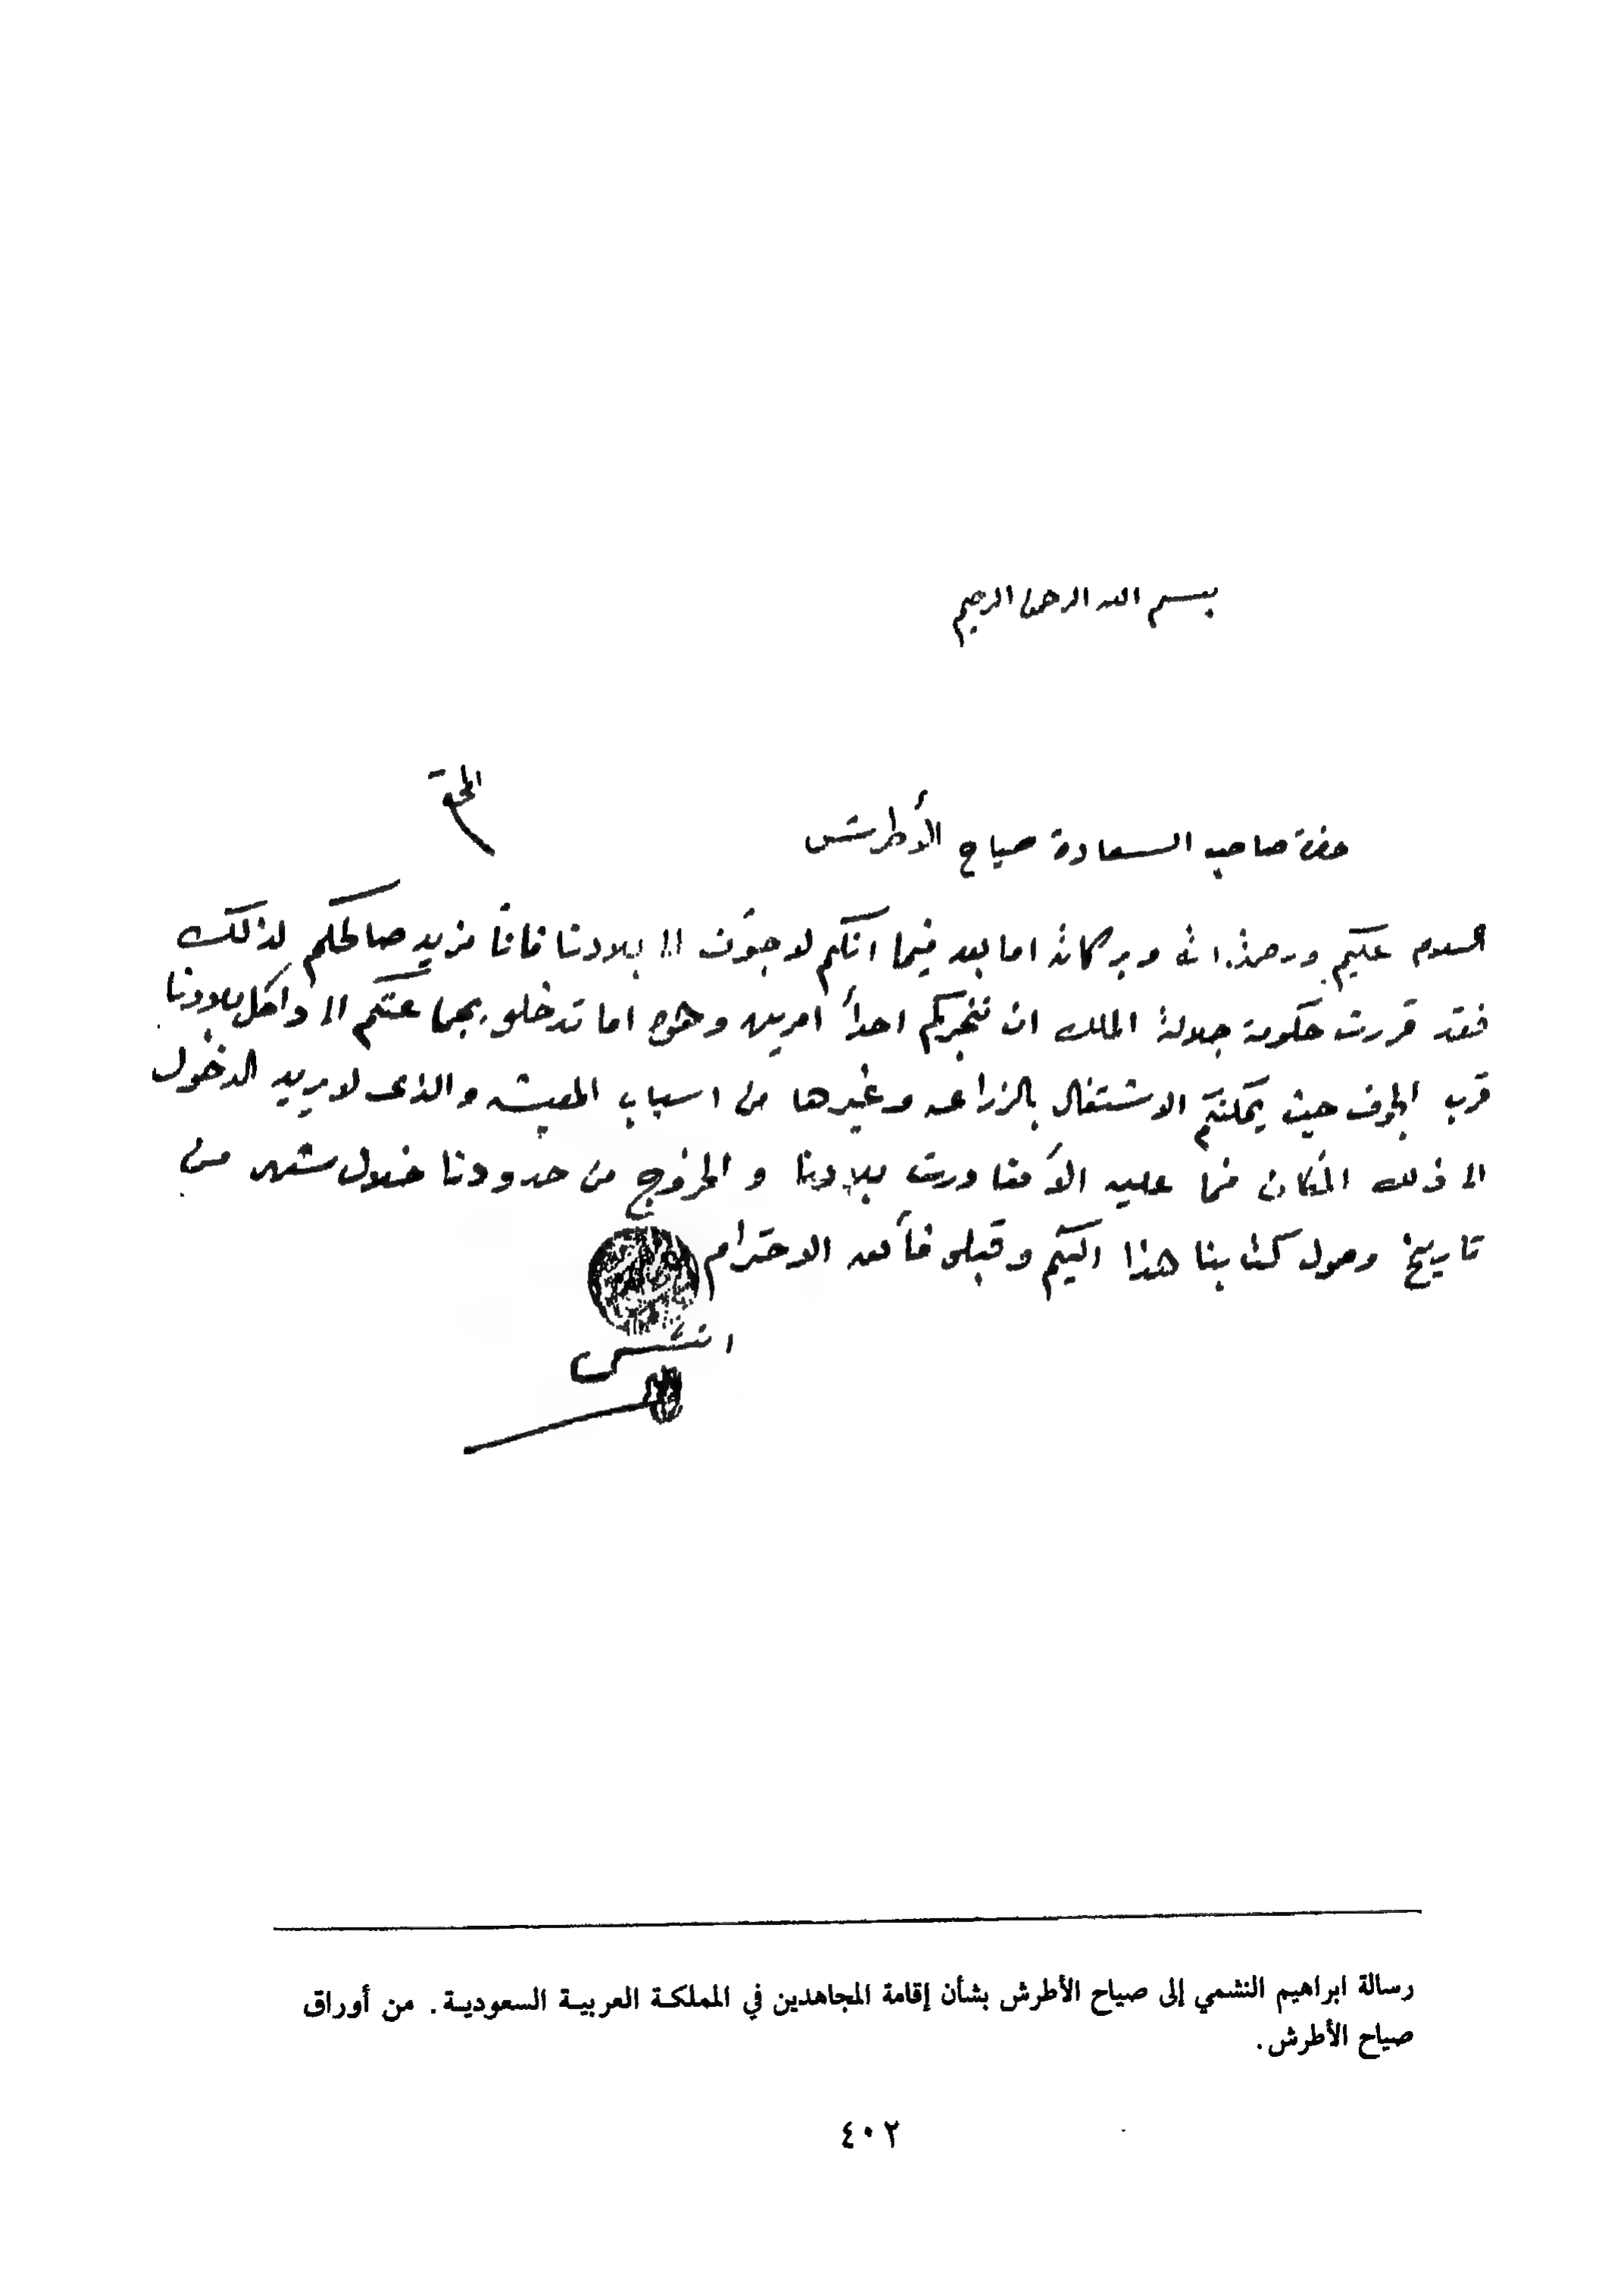 بسم الله الرحمن الرحيم
حضرة صاحب السعادة صياح الأطرش
السلام عليكم ورحمة الله وبركاته اما بعد فيما انكم لاجؤن الا بلادنا فاننا نريد صالحكم لذلك
فقد قررت حكومة جلالة الملك ان نخبركم احدأ امرين وهو اما تدخلو بجماعتكم الا داخل بلادنا
قرب الجوف حيث يمكنكم الاشتغال بالزراعه وغيرها من اسباب المعيشه والذى لا يريد الدخول
الا ذلك المكان فما عليه الأ مغادرت بلادنا والخروج من حدودنا خلال شهر من
تاريخ وصول كتابنا هذا اليكم وقبلو فأىق الاحترام
رسالة ابراهيم النشمي إلى صياح الأطرش بشأن إقامة المجاهدين في المملكة العربية السعودية. من أوراق
صياح الأطرش.
٤٠٢